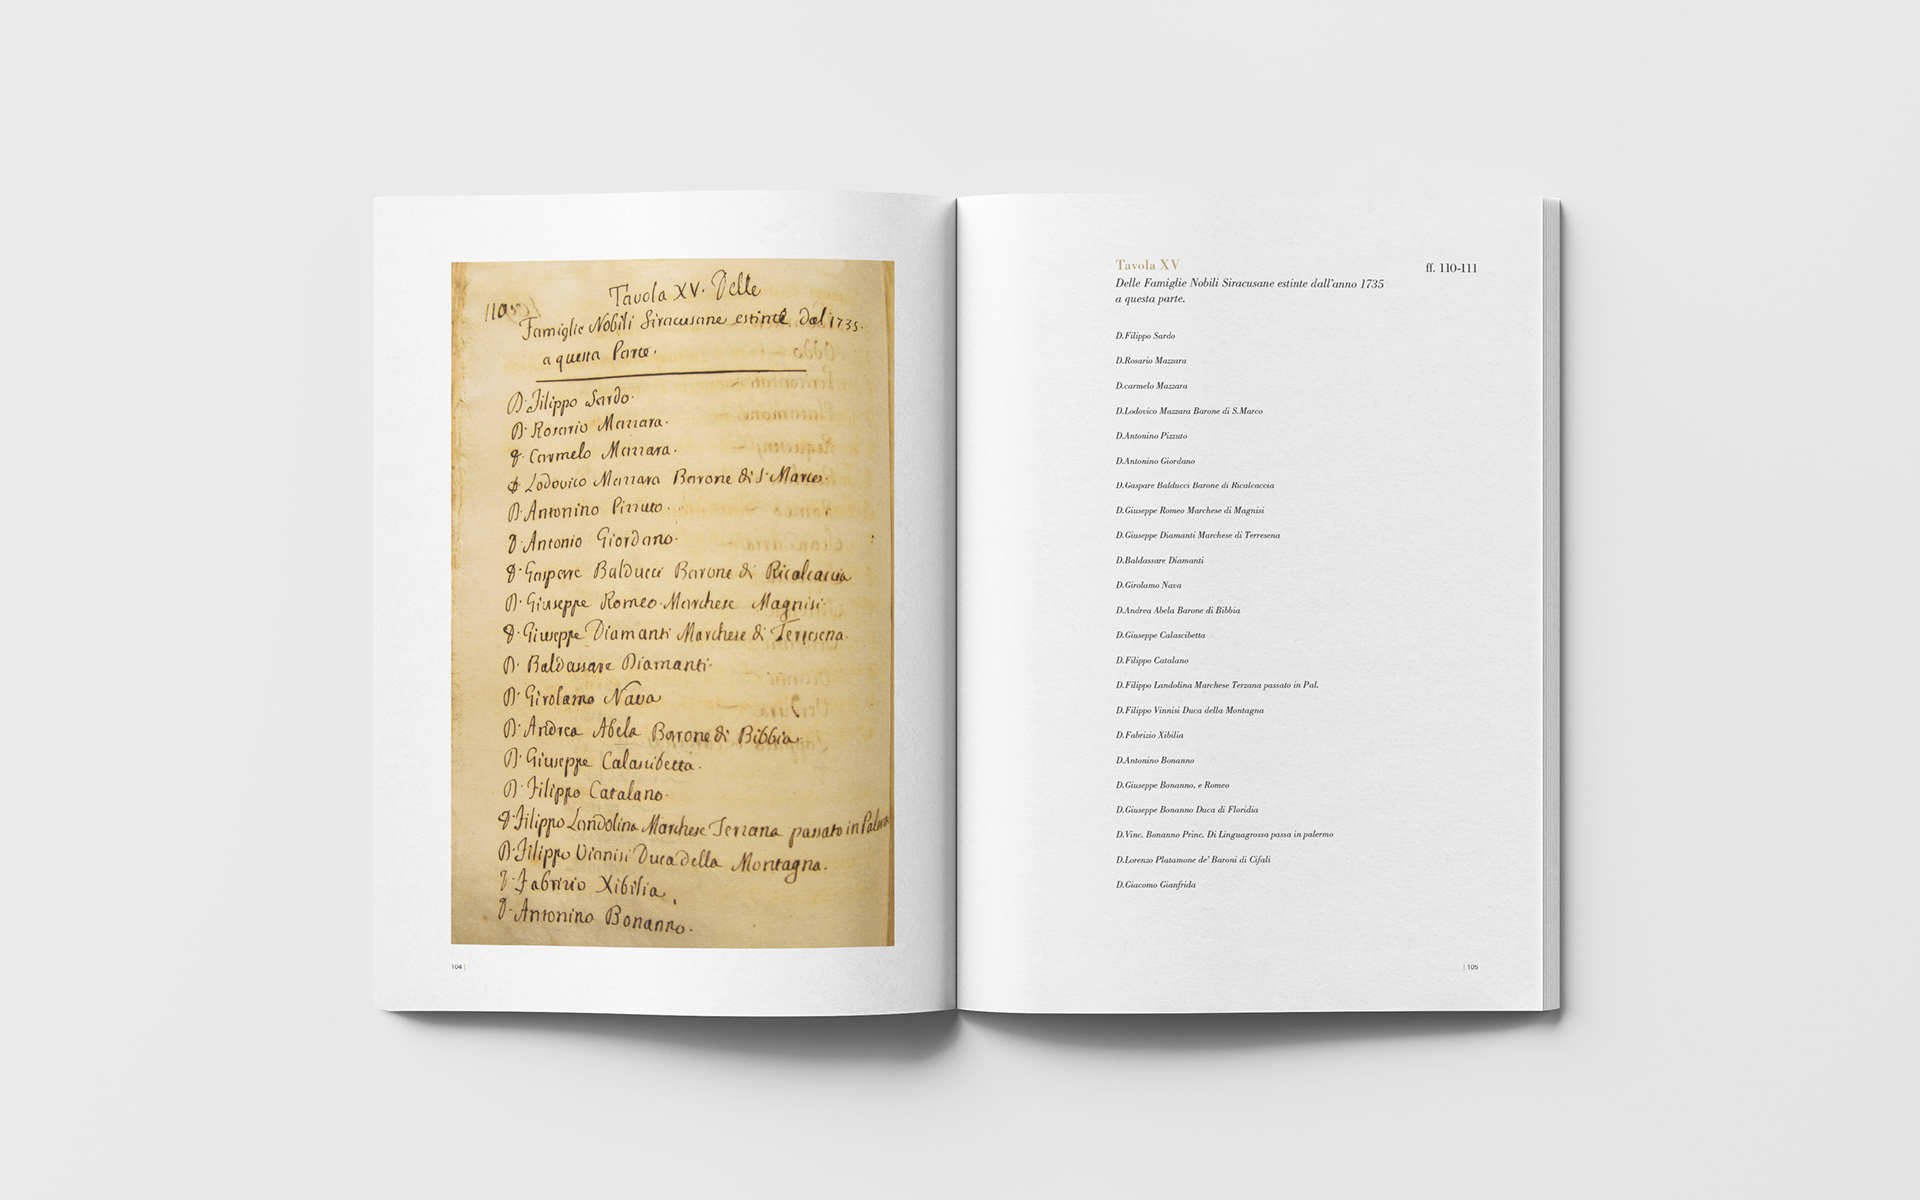 110.
Tavola XV. Delle
Famiglie Nobili Siracusane estinte dal 1735.
a questa Parte.
D. Filippo Sardo.
D. Rosario Mazzara.
D. Carmelo Mazzara.
D. Lodovico Mazzara Barone di S. Marco.
D. Antonino Pizzuto.
D. Antonio Giordano.
D. Gaspare Balducci Barone di Ricalcaccia
D. Giuseppe Romeo Marchese Magnisi.
D. Giuseppe Diamanti Marchese di Terresena.
D. Baldassare Diamanti.
D. Girolamo Nava
D. Andrea Abela Barone di Bibbia.
D. Giuseppe Calascibetta.
D. Filippo Catalano.
D. Filippo Landolina Marchese Terzana passato in
D. Filippo Vinnisi Duca della Montagna.
D. Fabrizio Xibilia
D. Antonino Bonanno.
104 |
Tavola XV
ff. 110-111
Delle Famiglie Nobili Siracusane estinte dall'anno 1735
a questa parte.
D.Filippo Sardo
D.Rosario Mazzara
D.carmelo Mazzara
D.Lodovico Mazzara Barone di S.Marco
D.Antonino Pizzuto
D.Antonino Giordano
D.Gaspare Balducci Barone di Ricalcaccia
D.Giuseppe Romeo Marchese di Magnisi
D.Giuseppe Diamanti Marchese di Terresena
D.Baldassare Diamanti
D.Girolamo Nava
D.Andrea Abela Barone di Bibbia
D.Giuseppe Calascibetta
D.Filippo Catalano
D.Filippo Landolina Marchese Terzana passato in Pal.
D.Filippo Vinnisi Duca della Montagna
D.Fabrizio Xibilia
D.Antonino Bonanno
D.Giuseppe Bonanno, e Romeo
D.Giuseppe Bonanno Duca di Floridia
D.Vinc. Bonanno Princ. Di Linguagrossa passa in palermo
D.Lorenzo Platamone de' Baroni di Cifali
D.Giacomo Gianfrida
| 105